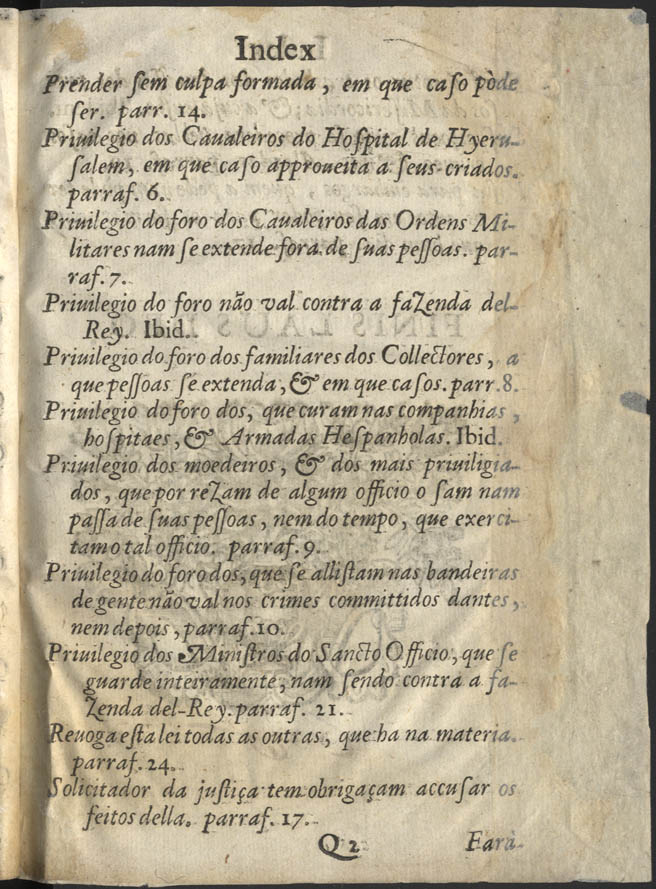 Index
Prender ſem culpa formada, em que caſo pòde
ſer. parr. 14.
Priuilegio dos Caualeiros do Hoſpital de Hyeru-
ſalem, em que caſo approueita a ſeus criados.
parraf. 6.
Priuilegio do foro dos Caualeiros das Ordens Mi-
litares nam ſe extende fora de ſuas peſſoas. par-
raf. 7.
Priuilegio do foro não val contra a faZenda del-
Rey. Ibid.
Priuilegio do foro dos familiares dos Collectores, a
que peſſoas ſe extenda, & em que caſos. parr. 8.
Priuilegio do foro dos, que curam nas companhias,
hoſpitaes, & Armadas Heſpanholas. Ibid.
Priuilegio dos moedeiros, & dos mais priuiligia-
dos, que por reZam de algum officio o ſam nam
paſſa de ſuas peſſoas, nem do tempo, que exerci-
tam o tal officio. parraf. 9.
Priuilegio do foro dos, que ſe alliſtam nas bandeiras
de gente não val nos crimes committidos dantes,
nem depois, parraf. 10.
Priuilegio dos Miniſtros do Sancto Officio, que ſe
guarde inteiramente, nam ſendo contra a fa-
Zenda del-Rey. parraf. 21.
Reuoga eſta lei todas as outras, que ha na materia.
parraf. 24.
Solicitador da juſtiça tem obrigaçam accuſar os
feitos della. parraf. 17.
Q 2 Farà